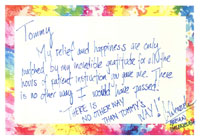 Tommy,
My relief and happiness are only
matched by my incredible gratitude for all the
hours of patient instruction you gave me. There
is no other way I would have passed.
THERE IS
NO OTHER WAY
THAN TOMMY'S
WAY!